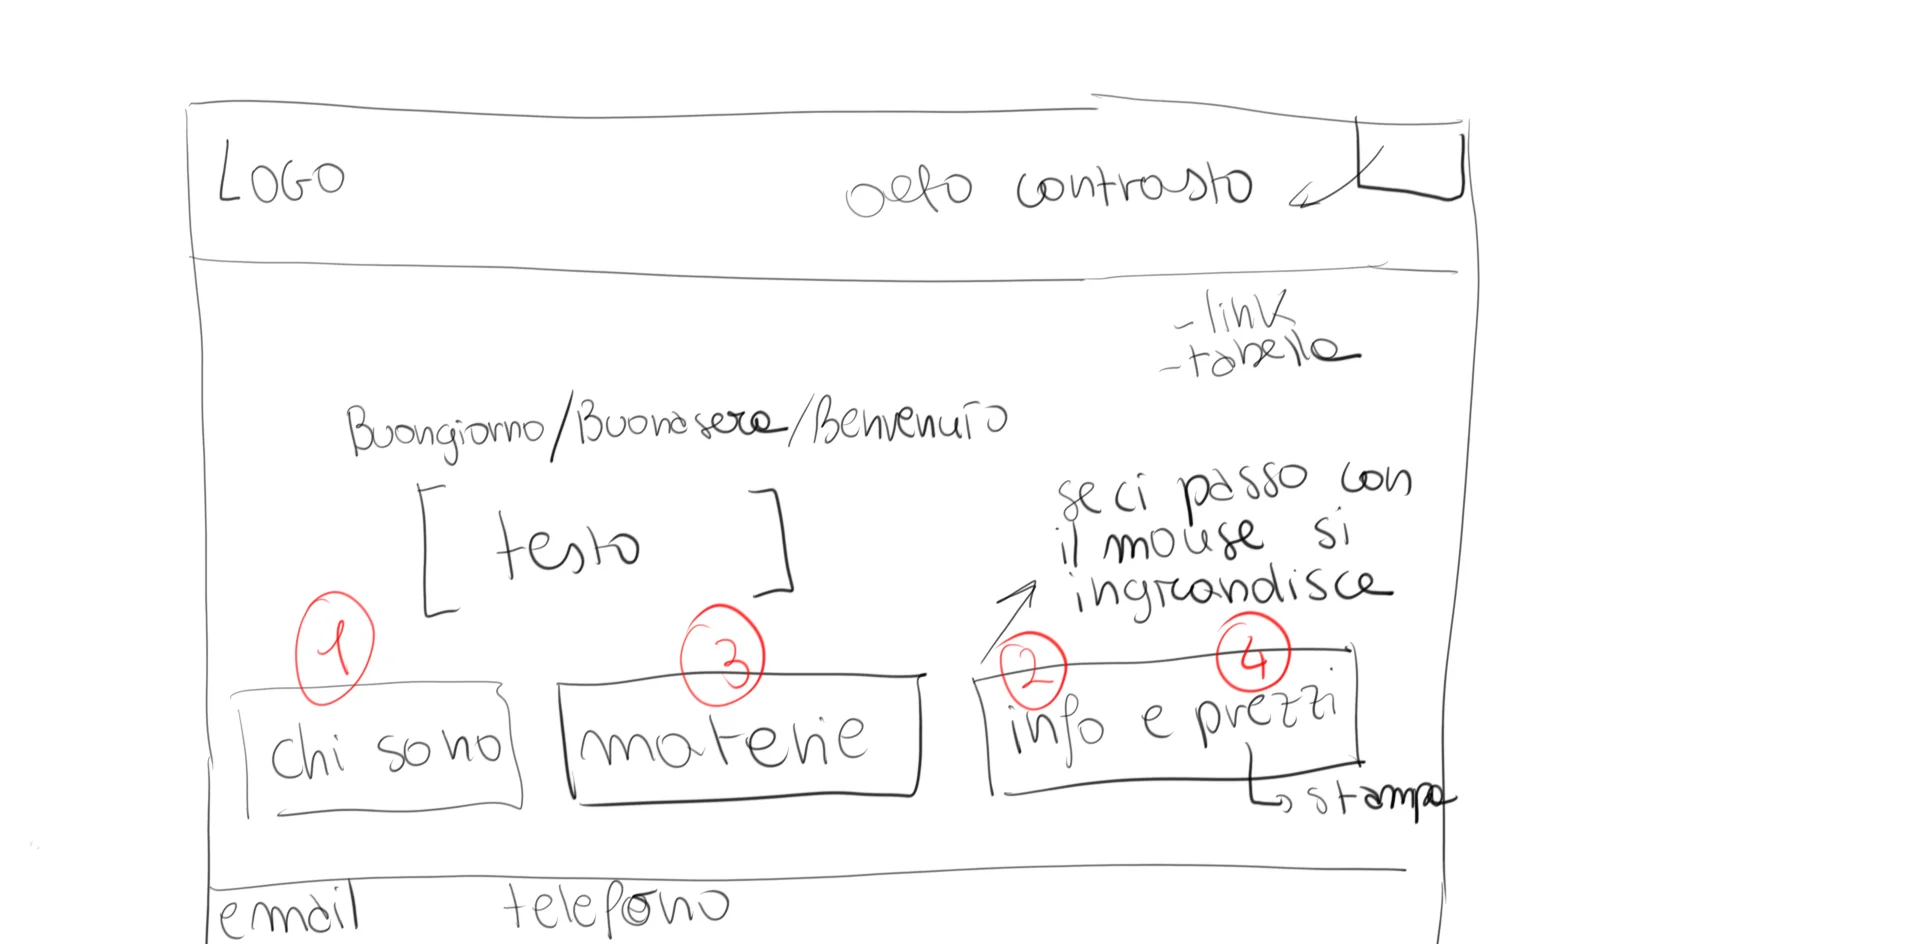 LOGO
alto contrasto
- link
- tabella
Buongiorno/Buonasera/Benvenuto
[ testo ]
se ci passo con
il mouse si
ingrandisce
1
3
2
4
chi sono
materie
info e prezzi
stampa
email telefono